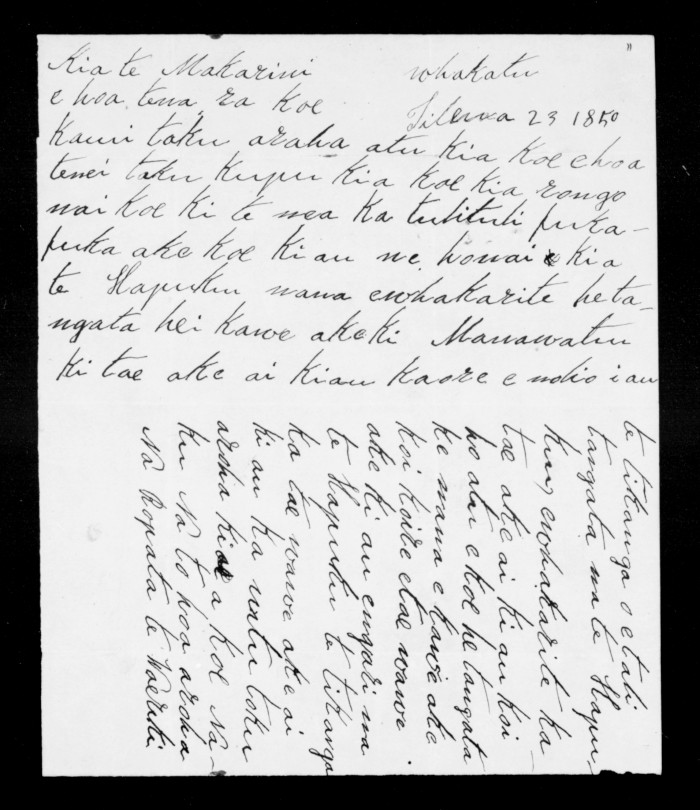 Kia te Makarini whakatu
e hoa tena ra koe Tilema 23 1850
Kanui taku aroha atu kia koe ehoa
tenei taku kupu kia koe kia rongo
mai koe ki te mea ka tuhituhi puka-
puka ake koe ki au me homai kia
te Hapuku mana ewhakarite heta-
ngata hei kawe akeki Manawatu
ki tae ake ai kiau kaore e ndio i au
te tikanga o etahi
tangata ma te Hapu-
ku ewhakarite ka
tae ake ai ki au koi
ho atu e koe he tangata
ke mana e kawe ake
koi kore etae wawe
ake ki au engari ma
te Hapuku te tikanga
ka tae wawe ake ai
ki au ka nutu toku
aroha ki a koe Na-
ku Na to hoa aroha
Na Ropata te